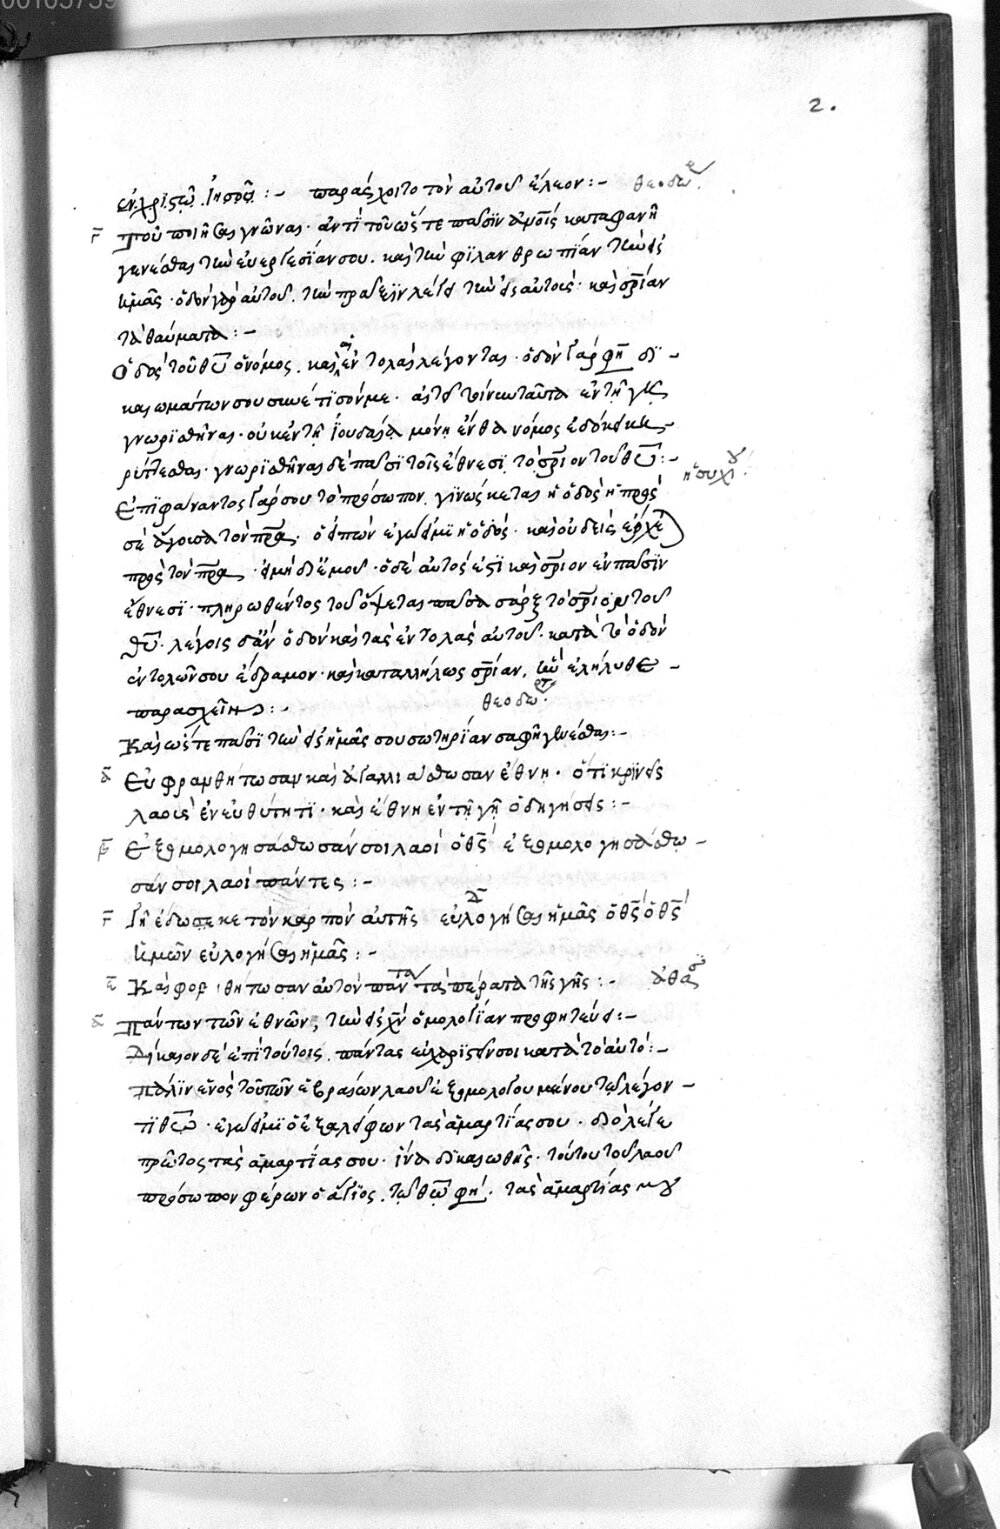 2.
ἐν χριστῶ ἰησοῦ :- παράσχοιτο τὸν αὐτοῦ ἔλεον :- θεοδω
γ τοῦ ποιῆσαι γνῶναι · ἀντὶ τοῦ ὥστε πᾶσιν καταφανῆ
γενέσθαι τὴν εὐεργεσίαν σου · καὶ τὴν φιλανθρωπίαν τὴν εἰς
ἡμᾶς · ὁδὸν γὰρ αὐτοῦ, τὴν πρᾶξιν λέγει τὴν εἰς αὐτούς · καὶ σρίαν
τὰ θαύματα :-
Ὁδὸς τοῦ θυ ὁ νόμος, καὶ αἱ ἐντολαὶ λέγοντας · ὁδὸν γάρ φη δι-
καιωμάτων σου συνέτισόν με · ταῦτα ἐν τῆ γῆ
γνωρισθῆναι · οὐκ ἐν τῆ Ἰουδαία μόνη ἔνθα νόμος ἐδόκει κη-
ρύττεσθαι · γνωρισθῆναι δὲ πᾶσι τοῖς ἔθνεσι τὸ σριον τοῦ θυ :- ἡσυχίου
Ἐπιφάναντος γάρ σου τὸ πρόσωπον, γινώσκεται ἡ ὁδὸς ἡ πρὸς
σὲ ἄγουσα τὸν πρα · ὁ εἰπὼν ἐγώ εἰμι ἡ ὁδός · καὶ οὐδεὶς ἔρχε
πρὸς τὸν πρα · εἰ μὴ δι' ἐμοῦ · ὁ δὲ αὐτός ἐστι καὶ σριον ἐν πᾶσιν
ἔθνεσι · πληρωθέντος τοῦ ὄψεται πᾶσα σὰρξ τὸ σριον τοῦ
θυ · λέγοις δ' ἂν ὁδὸν καὶ τὰς ἐντολὰς αὐτοῦ · κατὰ τὸ ὁδὸν
ἐντολῶν σου ἔδραμον · καὶ καταλλήλως σρίαν, ἣν ἐλήλυθε-
παρασχεῖν :- θεοδω
Καὶ ὥστε πᾶσι τὴν εἰς ἡμᾶς σου σωτηρίαν σαφῆ γενέσθαι :-
α Εὐφρανθήτωσαν καὶ ἀγαλλιάσθωσαν ἔθνη · ὅτι κρινεῖς
λαοὺς ἐν εὐθύτητι · καὶ ἔθνη ἐν τῆ γῆ ὁδηγήσεις :-
β Ἐξομολογησάσθωσάν σοι λαοὶ ὁ θς ἐξομολογησάσθω-
σάν σοι λαοὶ πάντες :-
γ Γῆ ἔδωκε τὸν καρπὸν αὐτῆς δ εὐλογήσαι ἡμᾶς ὁ θς ὁ θς
ἡμῶν εὐλογήσαι ἡμᾶς :-
ε Καὶ φοβηθήτωσαν αὐτὸν πάντα τὰ πέρατα τῆς γῆς :- ἀθα
α Πάντων τῶν ἐθνῶν, τὴν εἰς χν ὁμολογίαν προφητεύει :-
Δίκαιον δὲ ἐπὶ τούτοις, πάντας εὐχαριστεῖν σοι κατὰ τὸ αὐτό :-
Πάλιν ἑνὸς τοῦ τῶν ἑβραίων λαοῦ ἐξομολογουμένου τῶ λέγον-
τι θεῶ · ἐγώ εἰμι ὁ ἐξαλείφων τὰς ἁμαρτίας σου · διὸ λέγε
πρῶτος τὰς ἁμαρτίας σου · ἵνα δικαιωθῆς · τούτου τοῦ λαοῦ
πρόσωπον φέρων ὁ ἅγιος, τῶ θω φη · τὰς ἁμαρτίας μου